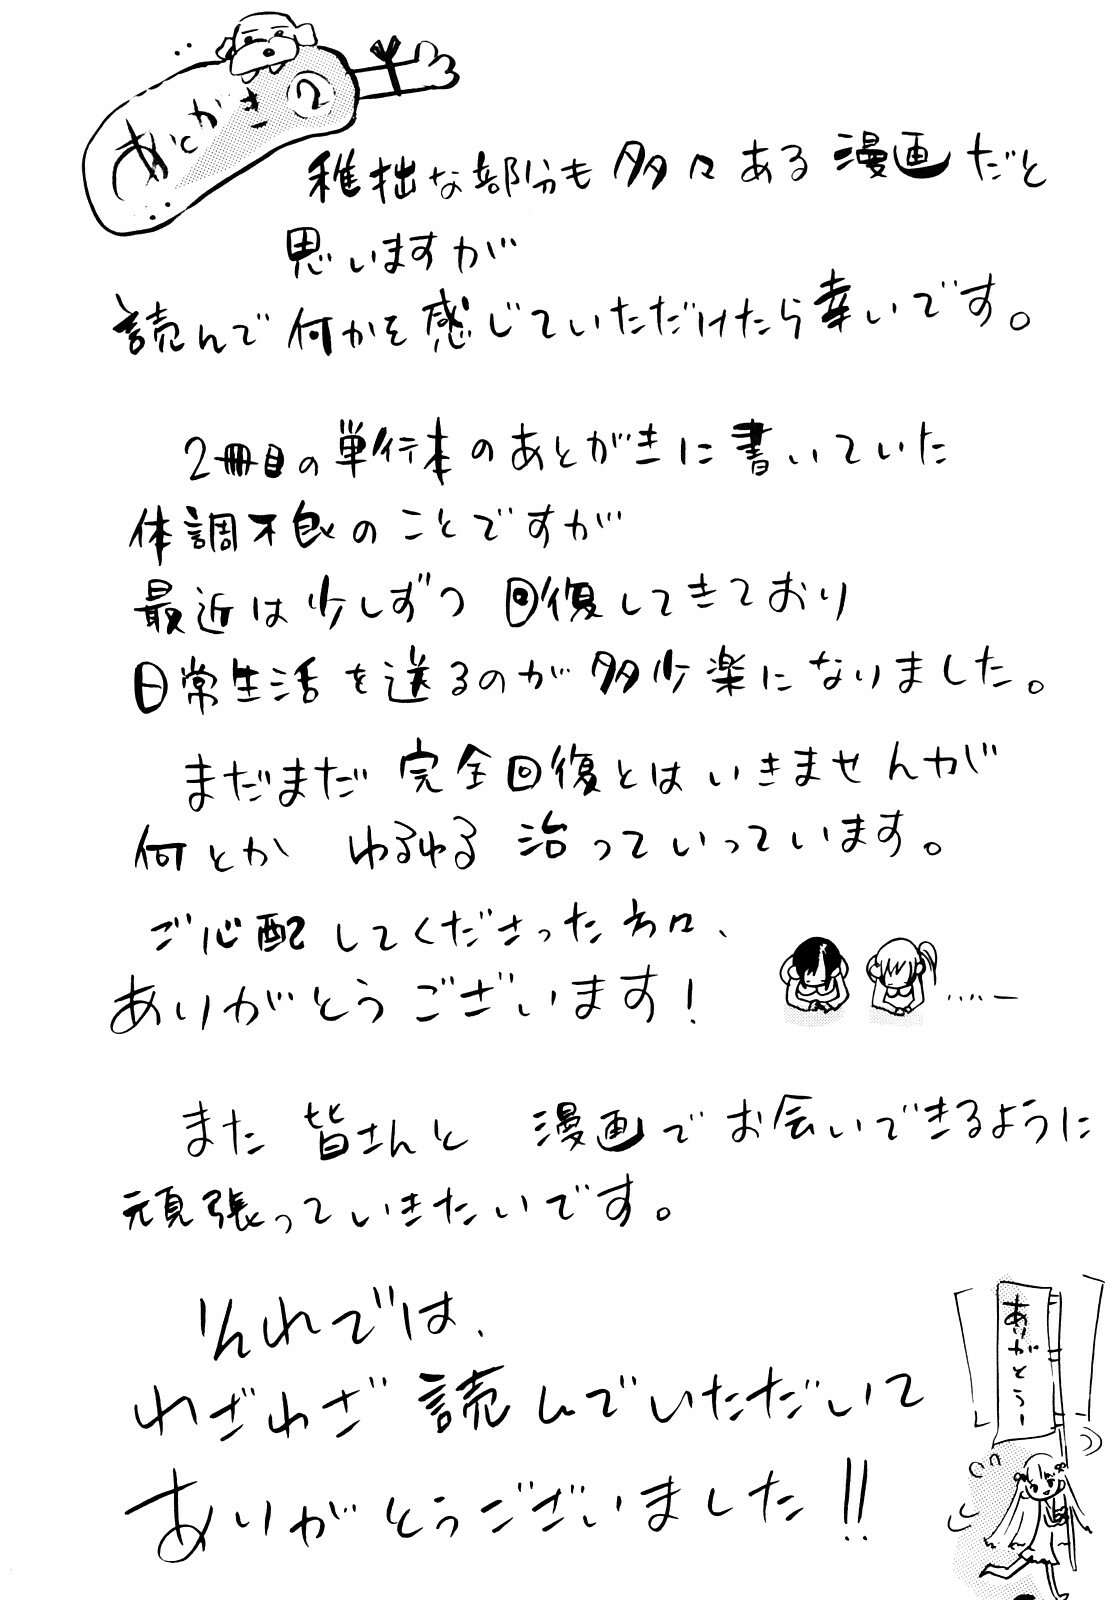 あとがき②
稚拙な部分も多々ある漫画だと
思いますが
読んで何かを感じていただけたら幸いです。
2冊目の単行本のあとがきに書いていた
体調不良のことですが
最近は少しずつ回復してきており
日常生活を送るのが多少楽になりました。
まだまだ完全回復とはいきませんが
何とか ゆるゆる 治っていっています。
ご心配してくださった方々、
ありがとうございます!
また 皆さんと 漫画でお会いできるように
頑張っていきたいです。
それでは、
わざわざ読んでいただいて
ありがとうございました!!
ありがとうー